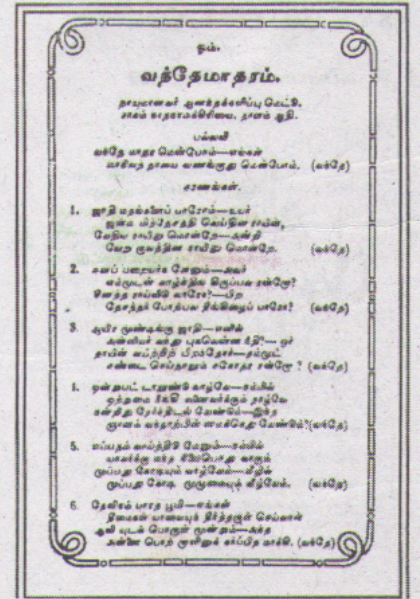 ஓம்.
வந்தேமாதரம்.
தாயுமானவர் ஆனந்தக்களிப்பு மெட்டு.
ராகம் நாதநாமக்கிரியை, தாளம் ஆதி.
பல்லவி
வந்தே மாதர மென்போம்—எங்கள்
மாநிலத் தாயை வணங்குது மென்போம். (வந்தே)
சரணங்கள்.
1. ஜாதி மதங்களைப் பாரோம்—உயர்
ஜன்ம மித்தேசத்தி லெய்தின ராயின்,
வேதிய ராயினு மொன்றே—அன்றி
வேறு குலத்தின ராயினு மொன்றே. (வந்தே)
2. ஈனப் பறையர்க ளேனும்—அவர்
எம்முடன் வாழ்ந்திங் கிருப்பவ ரன்றோ?
சீனத்த ராய்விடு வாரோ?—பிற
தேசத்தர் போற்பல தீங்கிழைப் பாரோ? (வந்தே)
3. ஆயிர முண்டிங்கு ஜாதி—எனில்
அன்னியர் வந்து புகலென்ன நீதி?—ஓர்
தாயின் வயிற்றிற் பிறந்தோர்—தம்முட்
சண்டை செய்தாலும் சகோதர ரன்றோ? (வந்தே)
4. ஒன்றுபட் டாலுண்டு வாழ்வே—நம்மில்
ஒற்றுமை நீங்கி லனைவர்க்கும் தாழ்வே
நன்றிது தேர்ந்திடல் வேண்டும்—இந்த
ஞானம் வந்தாற்பின் னமக்கெது வேண்டும்? (வந்தே)
5. எப்பதம் வாய்த்திடு மேனும்—நம்மில்
யாவர்க்கு மந்த நிலைபொது வாகும்
முப்பது கோடியும் வாழ்வோம்—வீழில்
முப்பது கோடி முழுமையும் வீழ்வோம். (வந்தே)
6. தேவிநம் பாரத பூமி—எங்கள்
தீமைகள் யாவையுந் தீர்த்தருள் செய்வாள்
ஆவி யுடல் பொருள் மூன்றும்—அந்த
அன்னை பொற் றாளினுக் கர்ப்பித மாக்கி. (வந்தே)